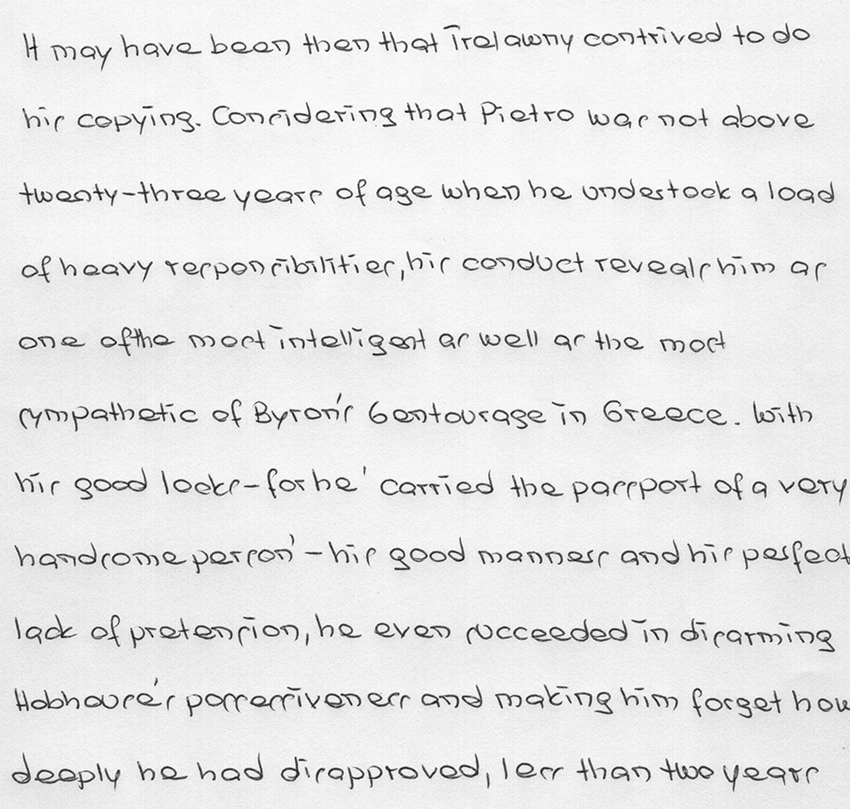 It may have been then that Trelawny contrived to do
his copying. Considering that Pietro was not above
twenty-three years of age when he undestook a load
of heavy responsibilities, his conduct reveals him as
one of the most intelligent as well as the most
sympathetic of Byron's entourage in Greece. With
his good looks - for he' carried the passport of a very
handsome person' - his good manners and his perfect
lack of pretension, he even succeeded in disarming
Hobhouse's possessiveness and making him forget how
deeply he had disapproved, less than two years